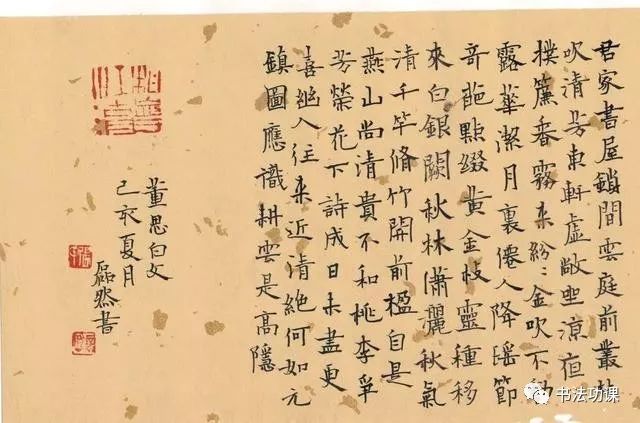 君家書屋鎖間雲庭前叢桂
吹清芳東軒虛敞坐涼夜
撲簾香霧来紛〻金吹不動
露華潔月裏僊人降瑤節
奇葩點綴黄金枝靈種移
來白銀闕秋林瀟麗秋氣
清千竿脩竹開前楹自是
燕山尚清貴不和桃李爭
芳榮花下詩成日未盡更
喜幽人往来近清絶何如元
鎮圖應識耕雲是高隱
董思白文
己亥夏月
磊然書
书法功课